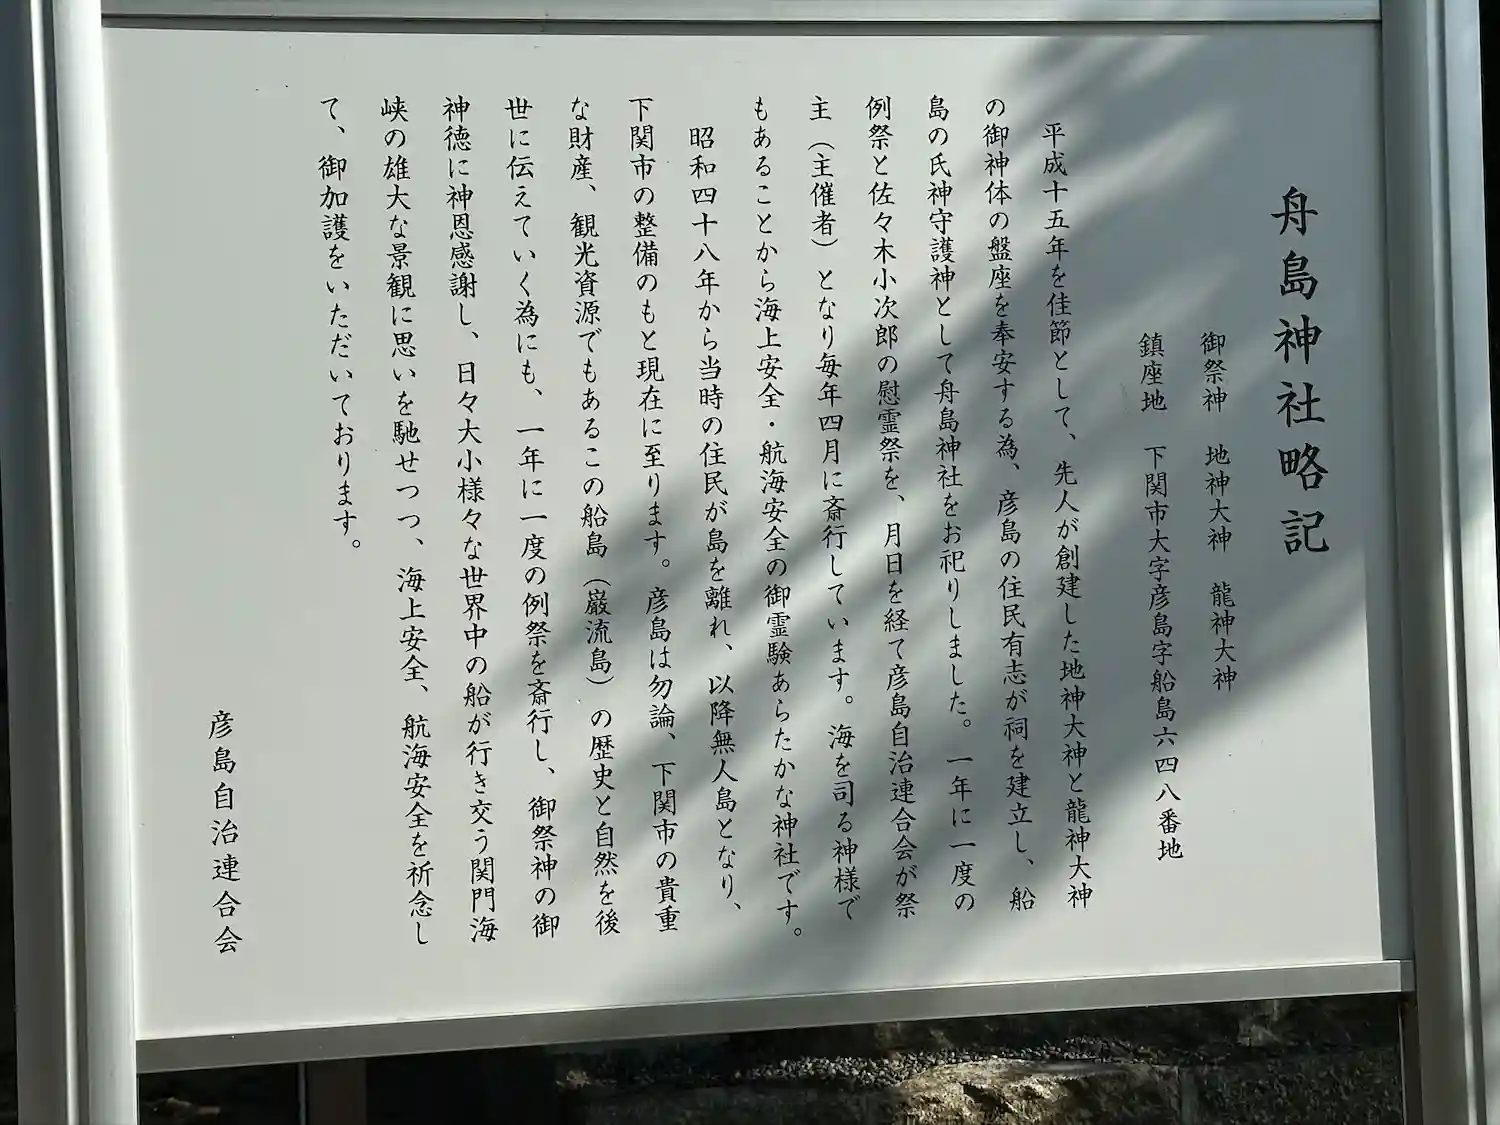 舟島神社略記
御祭神　地神大神　龍神大神
鎮座地　下関市大字彦島字船島六四八番地
平成十五年を佳節として、先人が創建した地神大神と龍神大神
の御神体の盤座を奉安する為、彦島の住民有志が祠を建立し、船
島の氏神守護神として舟島神社をお祀りしました。一年に一度の
例祭と佐々木小次郎の慰霊祭を、月日を経て彦島自治連合会が祭
主（主催者）となり毎年四月に斎行しています。海を司る神様で
もあることから海上安全・航海安全の御霊験あらたかな神社です。
昭和四十八年から当時の住民が島を離れ、以降無人島となり、
下関市の整備のもと現在に至ります。彦島は勿論、下関市の貴重
な財産、観光資源でもあるこの船島（巌流島）の歴史と自然を後
世に伝えていく為にも、一年に一度の例祭を斎行し、御祭神の御
神徳に神恩感謝し、日々大小様々な世界中の船が行き交う関門海
峡の雄大な景観に思いを馳せつつ、海上安全、航海安全を祈念し
て、御加護をいただいております。
彦島自治連合会